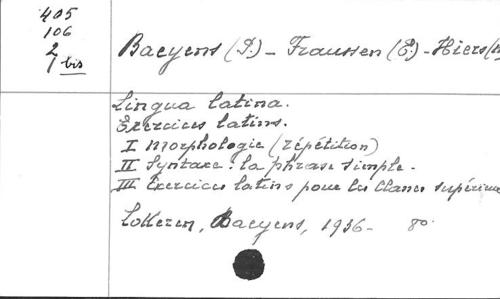 405
106
2
1 bis
Baeyens (P.) - Franssen (E.) - Hiers
Lingua latina.
Exercices latins.
I Morphologie (répétition)
II Syntaxe : la phrase simple.
III Exercices latins pour les classes supérieures
Lokeren, Baeyens, 1936- 8o.